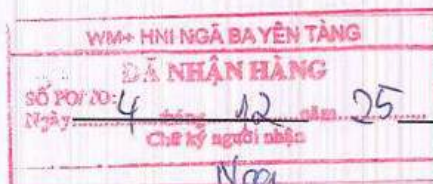 WM+ HNI NGÃ BA YÊN TÀNG
ĐÃ NHẬN HÀNG
SỐ PO/TO:
Ngày 4 tháng 12 năm 25
Chữ ký người nhận